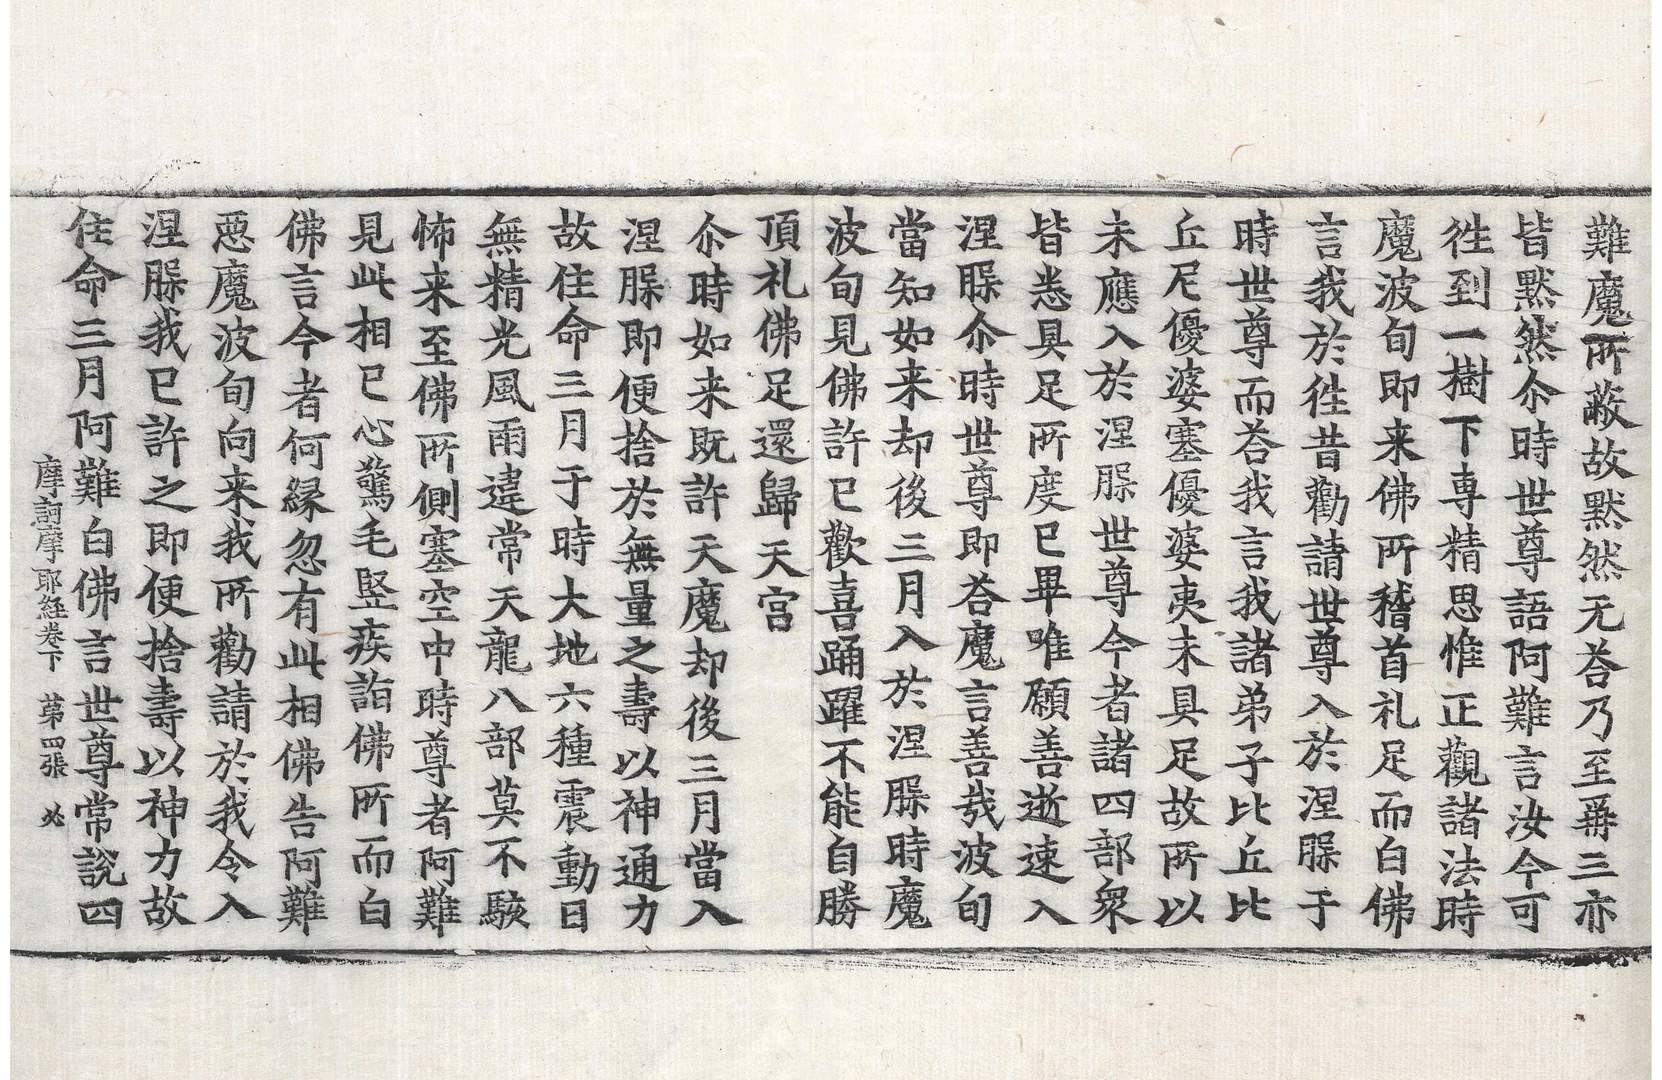 難魔所蔽故黙然无荅乃至再三亦
皆黙然尒時世尊語阿難言汝今可
徃到一樹下専精思惟正觀諸法時
魔波旬即来佛所稽首礼足而白佛
言我於徃昔勸請世尊入於涅槃于
時世尊而荅我言我諸弟子比丘比
丘尼優婆塞優婆夷未具足故所以
未應入於涅槃世尊今者諸四部衆
皆悉具足所度已畢唯願善逝速入
涅槃尒時世尊即荅魔言善㢤波旬
當知如来却後三月入於涅槃時魔
波旬見佛許已歡喜踊躍不能自勝
頂礼佛足還歸天宫
尒時如来既許天魔却後三月當入
涅槃即便捨於無量之壽以神通力
故住命三月于時大地六種震動日
無精光風雨違常天龍八部莫不駭
怖来至佛所側塞空中時尊者阿難
見此相已心驚毛竪疾詣佛所而白
佛言今者何縁忽有此相佛告阿難
惡魔波旬向来我所勸請於我令入
涅槃我已許之即便捨壽以神力故
住命三月阿難白佛言世尊常説四
摩訶摩耶経卷下 苐四張 必